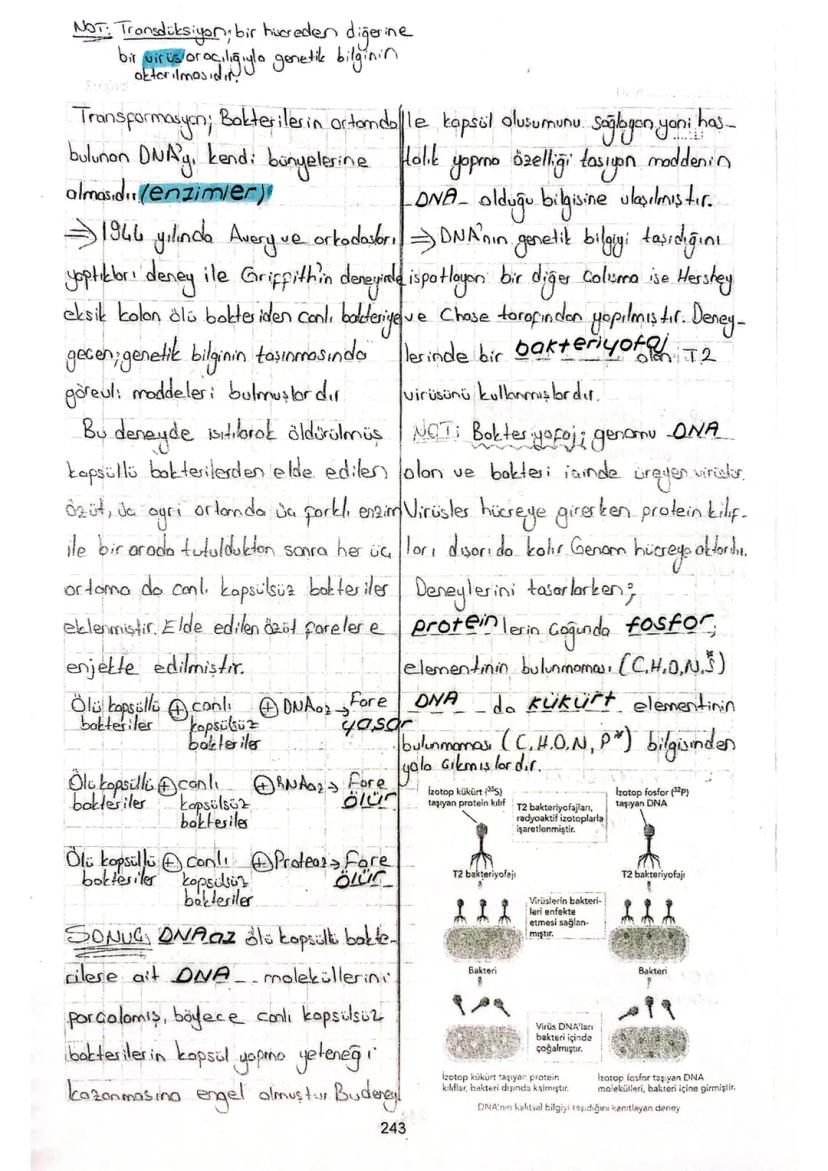 NOT: Transdüksiyon; bir hücreden diğerine
bir virüs aracılığıyla genetik bilginin
aktarılmasıdır.
Transformasyon; Bakterilerin ortamda
bulunan DNA'yı kendi bünyelerine
almasıdır. (enzimler)
⇒ 1944 yılında Avery ve arkadaşları
yaptıkları deney ile Griffith'in deneyinde
eksik kalan ölü bakteriden canlı bakteriye
geçen; genetik bilginin taşınmasında
görevli maddeleri bulmuşlardır
Bu deneyde ısıtılarak öldürülmüş
kapsüllü bakterilerden elde edilen
özüt, üç ayrı ortamda üç farklı enzim
ile bir arada tutulduktan sonra her üç
ortama da canlı kapsülsüz bakteriler
eklenmiştir. Elde edilen özüt farelere
enjekte edilmiştir.
Ölü kapsüllü ⊕ canlı ⊕ DNAaz → Fare
bakteriler kapsülsüz yaşar
bakteriler
Ölü kapsüllü ⊕ canlı ⊕ RNAaz → Fare
bakteriler kapsülsüz ölür
bakteriler
Ölü kapsüllü ⊕ canlı ⊕ Proteaz → Fare
bakteriler kapsülsüz ölür
bakteriler
SONUÇ; DNAaz ölü kapsüllü bakte-
rilere ait DNA moleküllerini
parçalamış, böylece canlı kapsülsüz
bakterilerin kapsül yapma yeteneği
kazanmasına engel olmuştur. Bu deney
le kapsül oluşumunu sağlayan yani has-
talık yapma özelliği taşıyan maddenin
DNA olduğu bilgisine ulaşılmıştır.
⇒ DNA'nın genetik bilgiyi taşıdığını
ispatlayan bir diğer çalışma ise Hershey
ve Chase tarafından yapılmıştır. Deney-
lerinde bir bakteriyofaj olan T2
virüsünü kullanmışlardır.
NOT: Bakteriyofaj; genomu DNA
olan ve bakteri içinde üreyen virüstür.
Virüsler hücreye girerken protein kılıf-
ları dışarıda kalır. Genom hücreye aktarılır.
Deneylerini tasarlarken;
proteinlerin çoğunda fosfor;
elementinin bulunmaması (C,H,O,N,S*)
DNA da kükürt elementinin
bulunmaması (C,H,O,N,P*) bilgisinden
yola çıkmışlardır.
İzotop kükürt (³⁵S)
taşıyan protein kılıf
T2 bakteriyofajları,
radyoaktif izotoplarla
işaretlenmiştir.
İzotop fosfor (³²P)
taşıyan DNA
T2 bakteriyofajı
T2 bakteriyofajı
Virüslerin bakteri-
leri enfekte
etmesi sağlan-
mıştır.
Bakteri
Bakteri
Virüs DNA'ları
bakteri içinde
çoğalmıştır.
İzotop kükürt taşıyan protein
kılıflar, bakteri dışında kalmıştır.
İzotop fosfor taşıyan DNA
molekülleri, bakteri içine girmiştir.
DNA'nın kalıtsal bilgiyi taşıdığını kanıtlayan deney
243